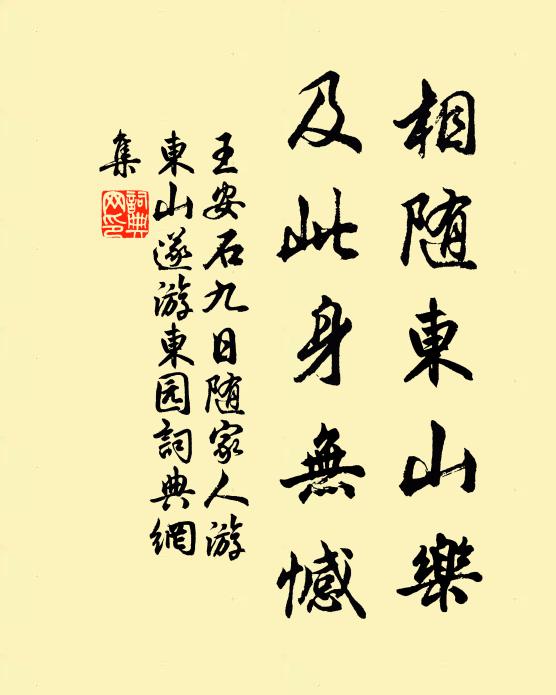 相随東山樂
及此身無憾
王安石九日随家人游
東山遂游東园詞典網
集
詞典網印